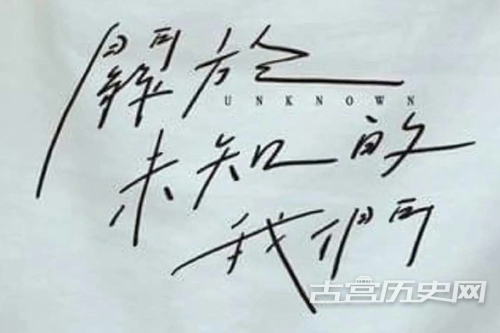 關於
UNKNOWN
未知的
我們
古宫历史网